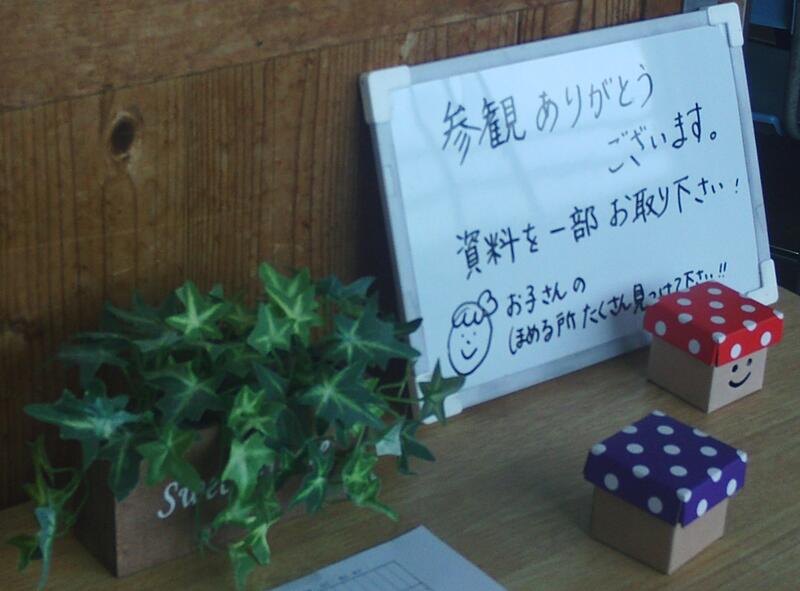 参観 ありがとう
ございます。
資料を一部 お取り下さい!
お子さんの
ほめる所 たくさん見つけて下さい!!
Sweet